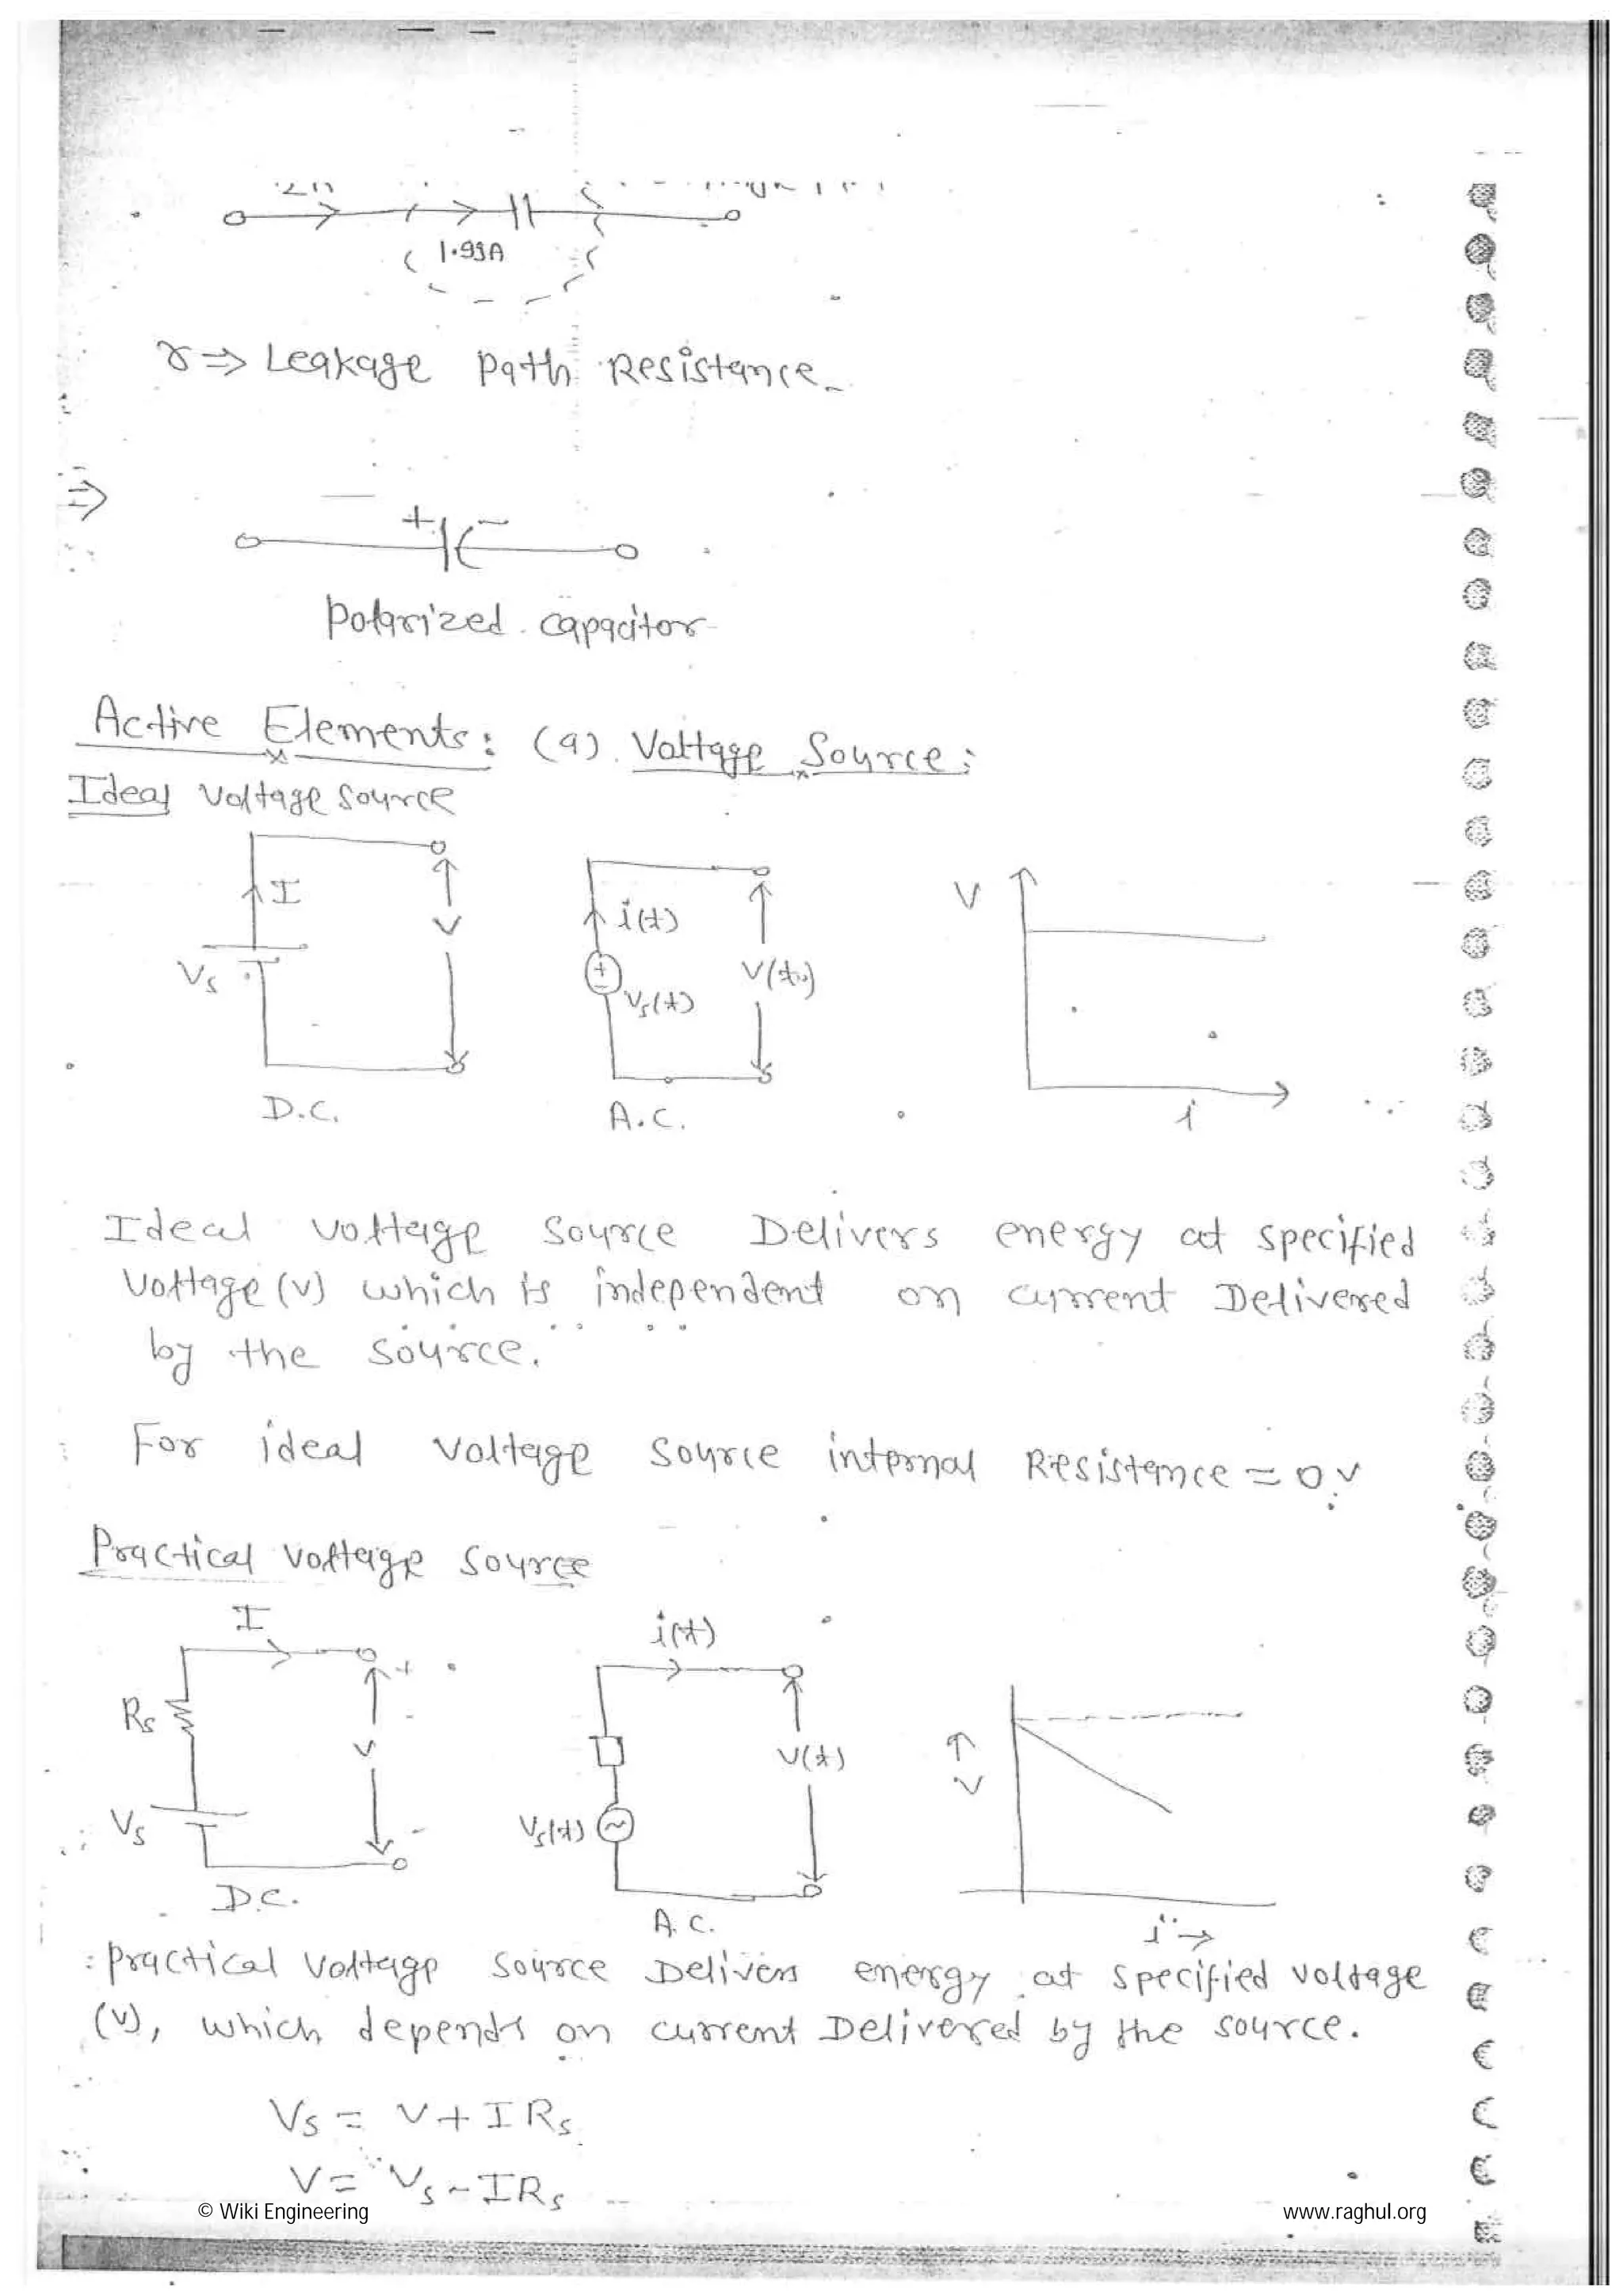 1.99A
r ⇒ Leakage Path Resistance
⇒
+ -
Polarized capacitor
Active Elements: (a) Voltage Source:
Ideal Voltage Source
I V Vs
i(t) Vs(t) V(t)
V i
D.C. A.C.
Ideal voltage Source Delivers energy at specified
Voltage (v) which is independent on current Delivered
by the source.
For ideal voltage source internal Resistance = 0
Practical voltage source
I i(t)
Rs + V -
Vs
V(t) Vs(t)
V
D.C. A.C. i →
Practical Voltage source Delivers energy at specified voltage
(v), which depends on current Delivered by the source.
Vs = V + I Rs
V = Vs - IRs
© Wiki Engineering www.raghul.org